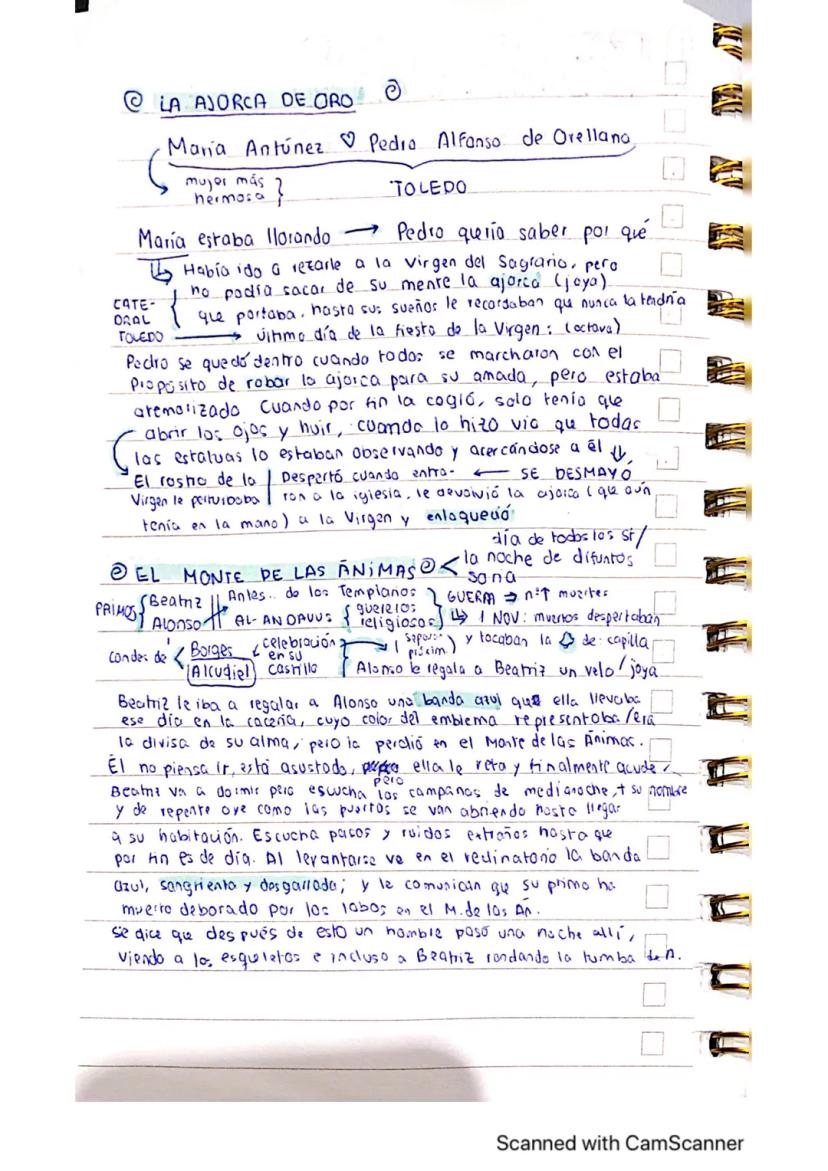 LA AJORCA DE ORO
María Antúnez ♡ Pedro Alfonso de Orellana
mujer más hermosa }
TOLEDO
María estaba llorando → Pedro quería saber por qué
↳ Había ido a rezarle a la Virgen del Sagrario, pero
no podía sacar de su mente la ajorca (joya)
CATEDRAL TOLEDO { que portaba, hasta sus sueños le recordaban que nunca la tendría
→ último día de la fiesta de la Virgen: (octava)
Pedro se quedó dentro cuando todos se marcharon con el
propósito de robar la ajorca para su amada, pero estaba
atemorizado Cuando por fin la cogió, solo tenía que
abrir los ojos y huir, cuando lo hizo vio que todas
las estatuas lo estaban observando y acercándose a él ⇓
El rostro de la | Despertó cuando entra- ← SE DESMAYÓ
Virgen le perturbaba | ron a la iglesia, le devolvió la ajorca (que aún
tenía en la mano) a la Virgen y enloqueció
día de todos los st/
EL MONTE DE LAS ÁNIMAS < la noche de difuntos
sona
PRIMOS { Beatriz Alonso
Antes.. de los Templarios
AL-ANDALUS { guerelos religiosos }
GUERRA ⇒ nº↑ muertes
↳ 1 NOV: muertos despertaban
y tocaban la de capilla
Condes de < Borges Alcudiel
celebración en su castillo
Alonso le regala a Beatriz un velo/joya
Beatriz le iba a regalar a Alonso una banda azul que ella llevaba
ese día en la cacería, cuyo color del emblema representaba/era
la divisa de su alma, pero la perdió en el Monte de las Ánimas.
Él no piensa ir, está asustado, pero ella le reta y finalmente acude.
Beatriz va a dormir pero escucha las campanas de medianoche, + su nombre
y de repente oye como las puertas se van abriendo hasta llegar
a su habitación. Escucha pasos y ruidos extraños hasta que
por fin es de día. Al levantarse ve en el reclinatorio la banda
azul, sangrienta y desgarrada; y le comunican que su primo ha
muerto deborado por los lobos en el M. de las Án.
Se dice que después de esto un hombre pasó una noche allí,
viendo a los esqueletos e incluso a Beatriz rondando la tumba de A.
Scanned with CamScanner